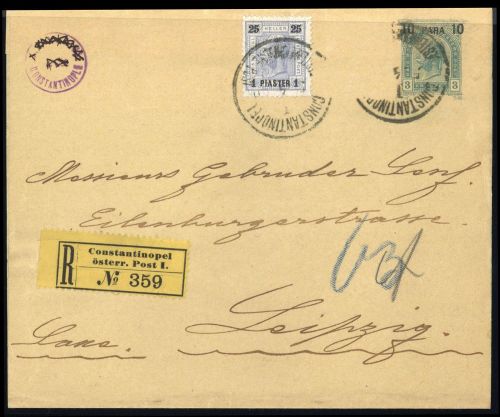 CONSTANTINOPEL
25 HELLER 25
1 PIASTER 1
CONSTANTINOPEL
10 PARA 10
3 3
CONSTANTINOPEL
Messieurs Gebruder Senf.
Eilenburgerstrasse.
R
Constantinopel
österr. Post I.
№ 359
Leipzig.